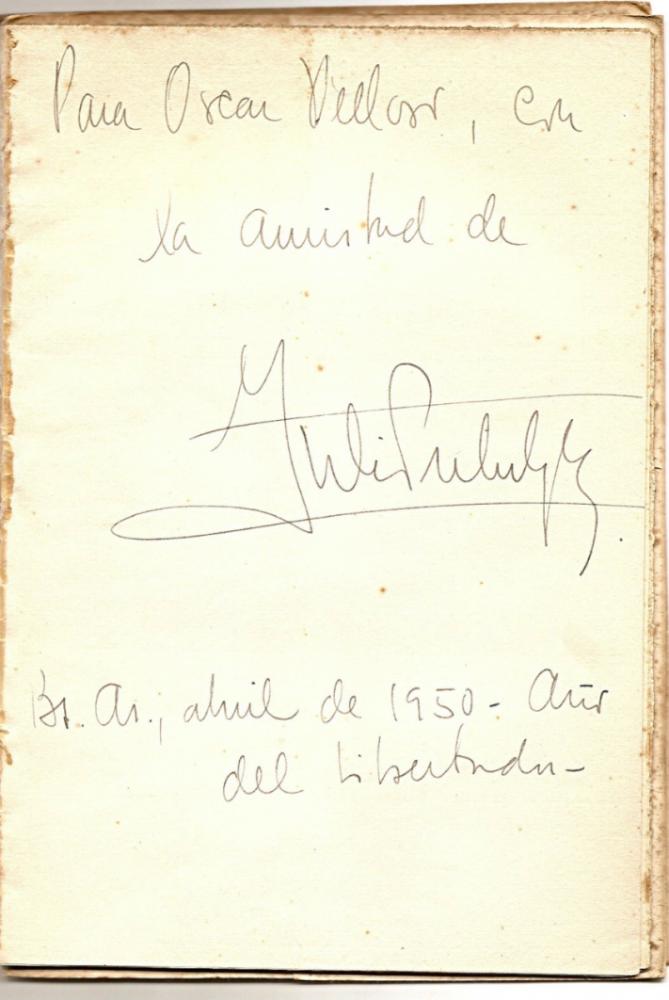 Para Oscar Velloso, con
la amistad de
Bs. As., abril de 1950 - Año
del Libertador -